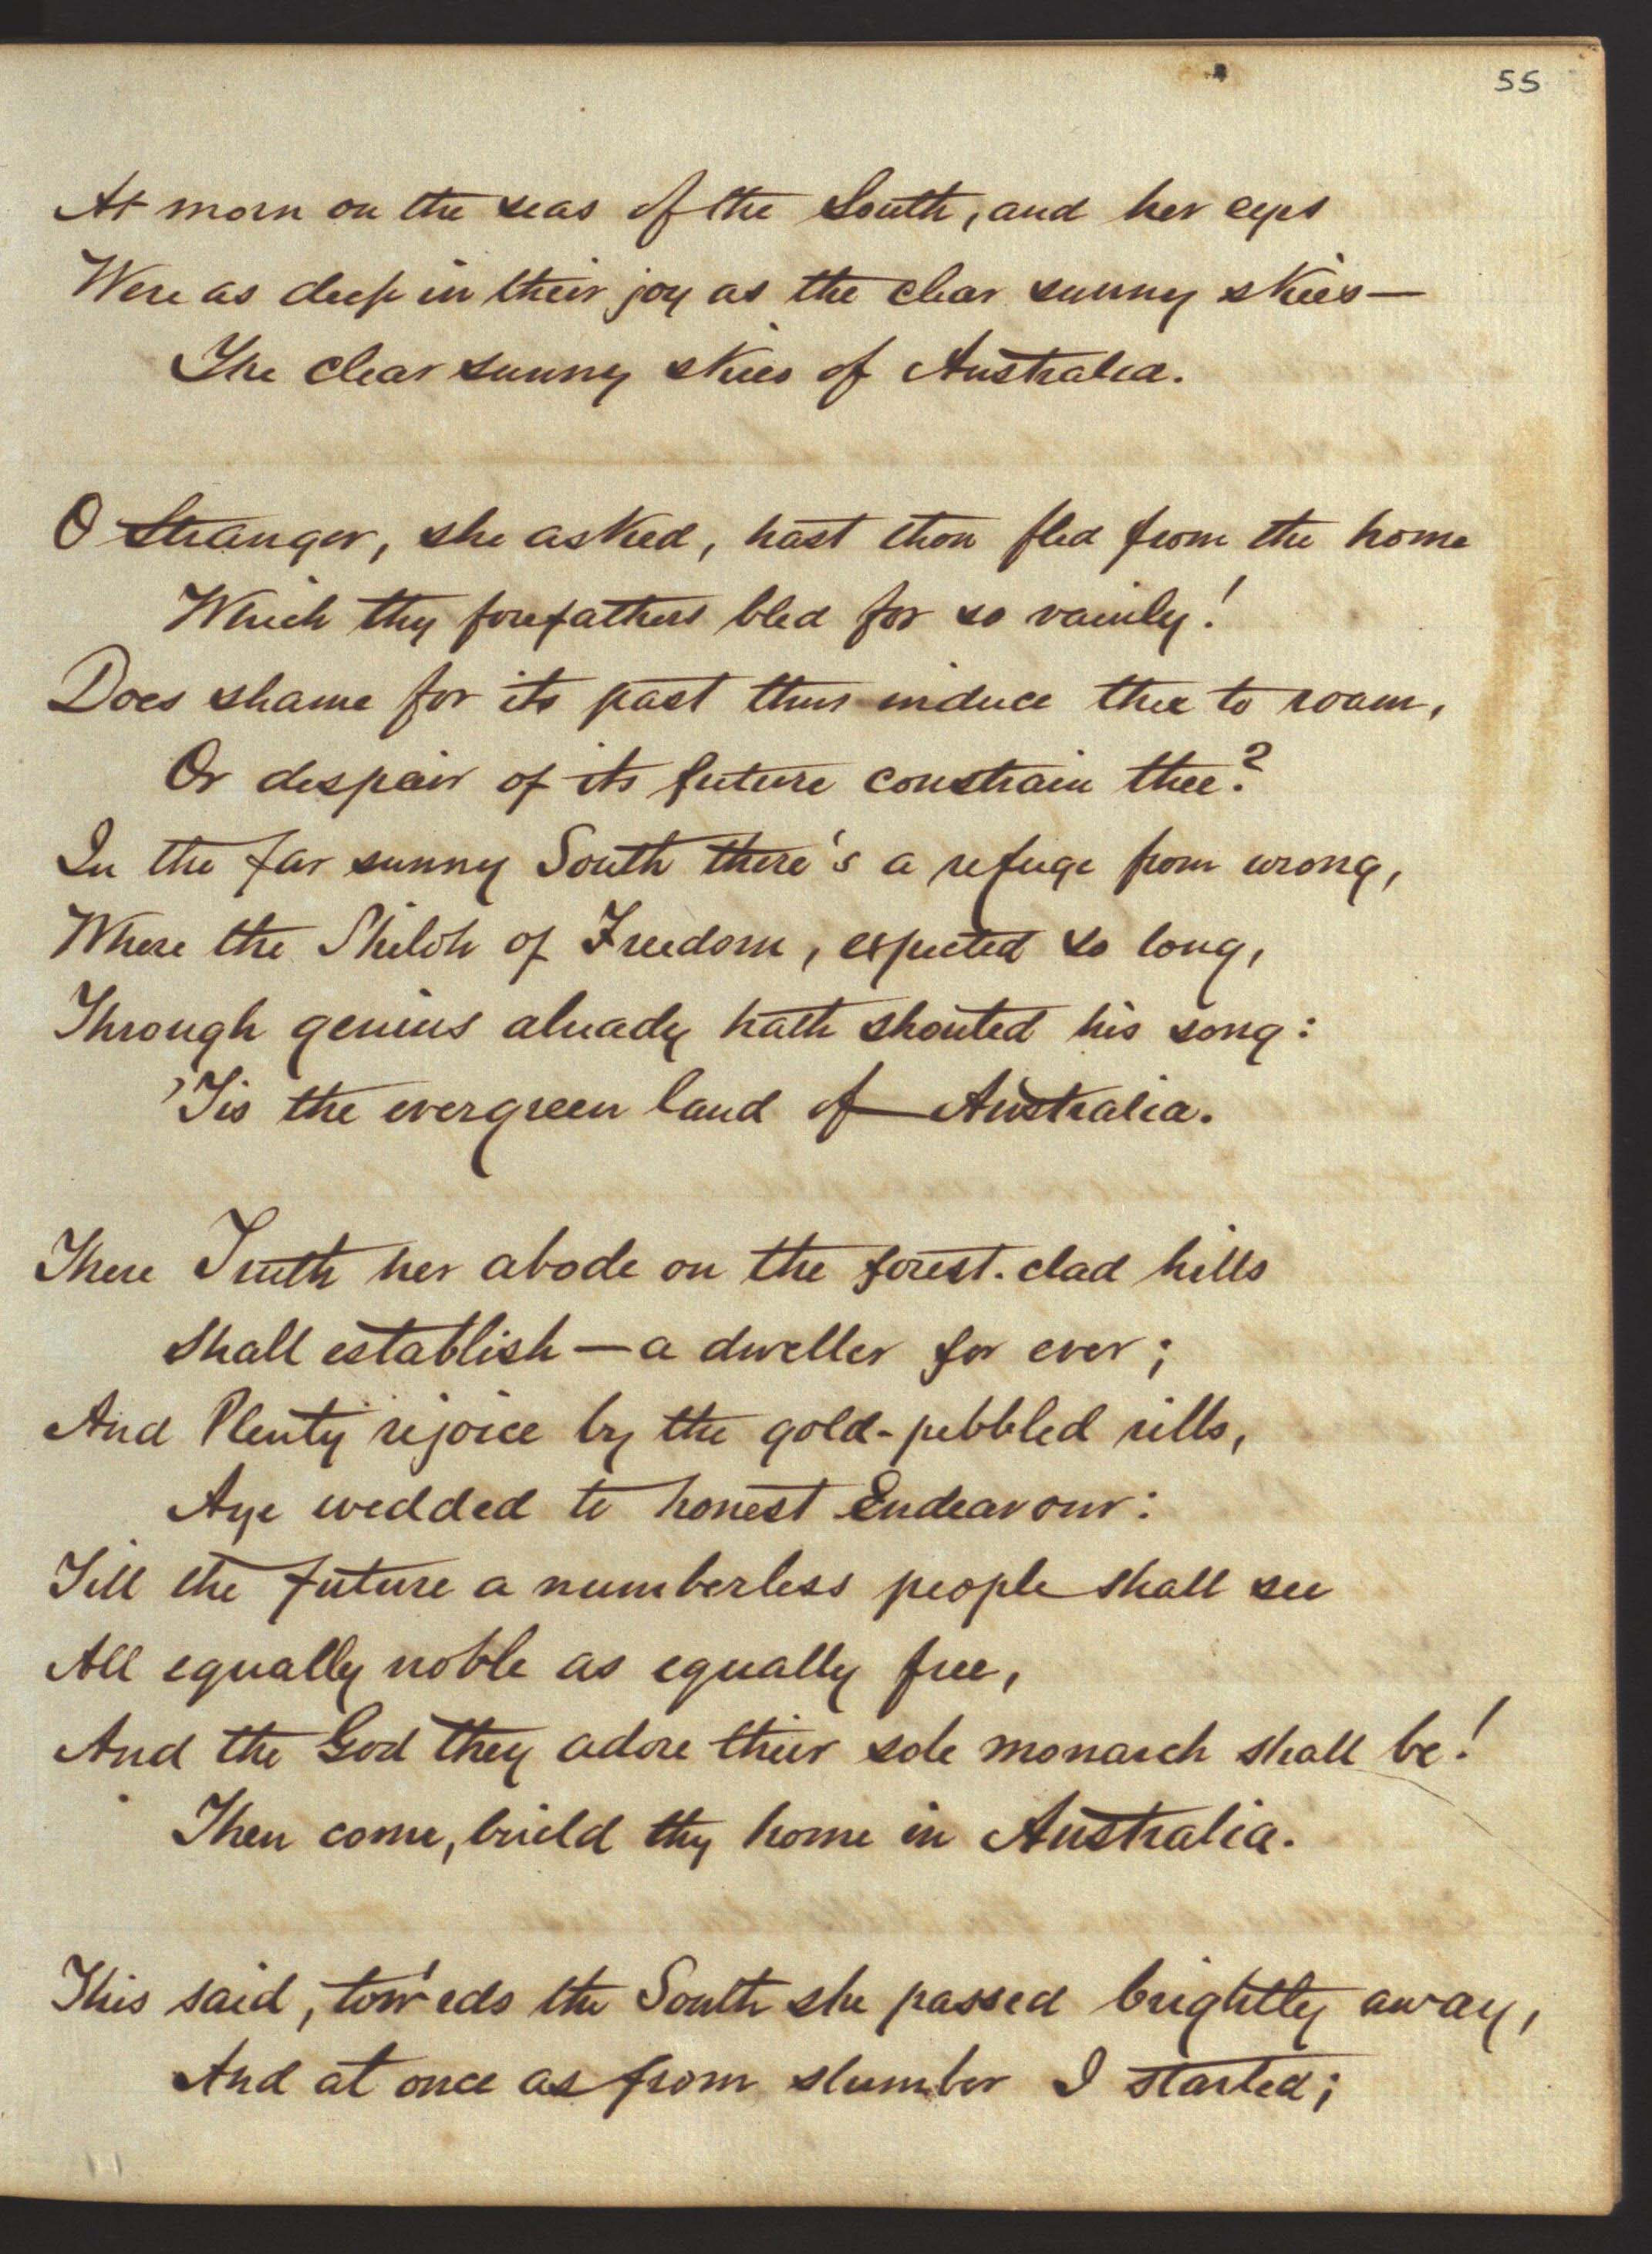 55
At morn on the seas of the South, and her eyes
Were as deep in their joy as the clear sunny skies—
The clear sunny skies of Australia.
O Stranger, she asked, hast thou fled from the home
Which thy forefathers bled for so vainly!
Does shame for its past thus induce thee to roam,
Or despair of its future constrain thee?
In the far sunny South there's a refuge from wrong,
Where the Shiloh of Freedom, expected so long,
Through genius already hath shouted his song:
'Tis the evergreen land of Australia.
There Truth her abode on the forest-clad hills
Shall establish—a dweller for ever;
And Plenty rejoice by the gold-pebbled rills,
Aye wedded to honest Endeavour:
Till the future a numberless people shall see
All equally noble as equally free,
And the God they adore their sole monarch shall be!
Then come, build thy home in Australia.
This said, tow'eds the South she passed brightly away,
And at once as from slumber I started;